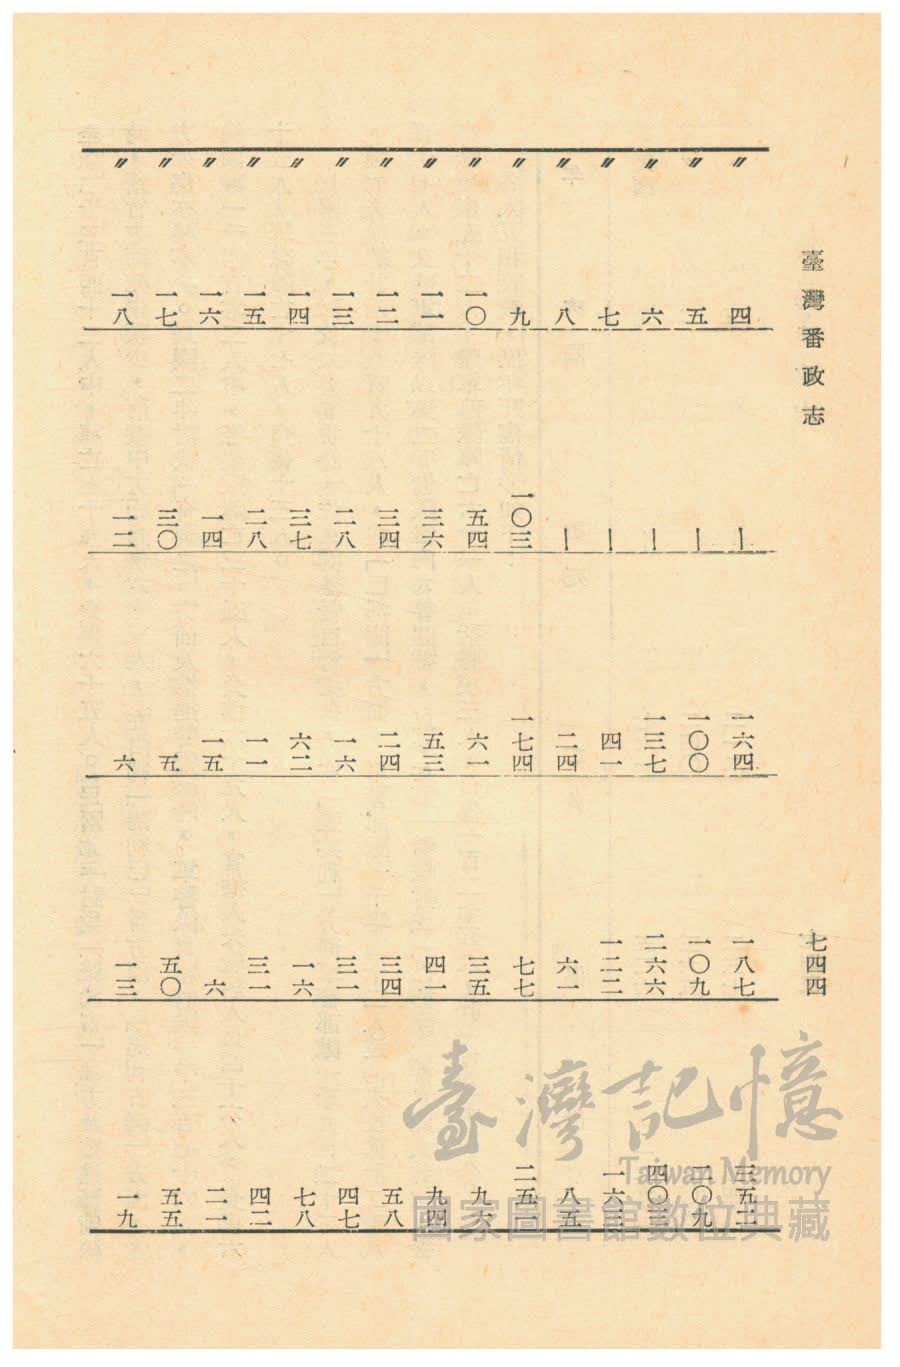 臺灣番政志
七四四
〃 四 ｜ 一六四 一八七 三五二
〃 五 ｜ 一〇〇 一〇九 二〇九
〃 六 ｜ 一三七 二六六 四〇三
〃 七 ｜ 四一 一二二 一六三
〃 八 ｜ 二四 六一 八五
〃 九 一〇三 一七四 七七 二五一
〃 一〇 五四 六一 三五 九六
〃 一一 三六 五三 四一 九四
〃 一二 三四 二四 三四 五八
〃 一三 二八 一六 三一 四七
〃 一四 三七 六二 一六 七八
〃 一五 二八 一一 三一 四二
〃 一六 一四 一五 六 二一
〃 一七 三〇 五 五〇 五五
〃 一八 一二 六 一三 一九
臺灣記憶
Taiwan Memory
國家圖書館數位典藏